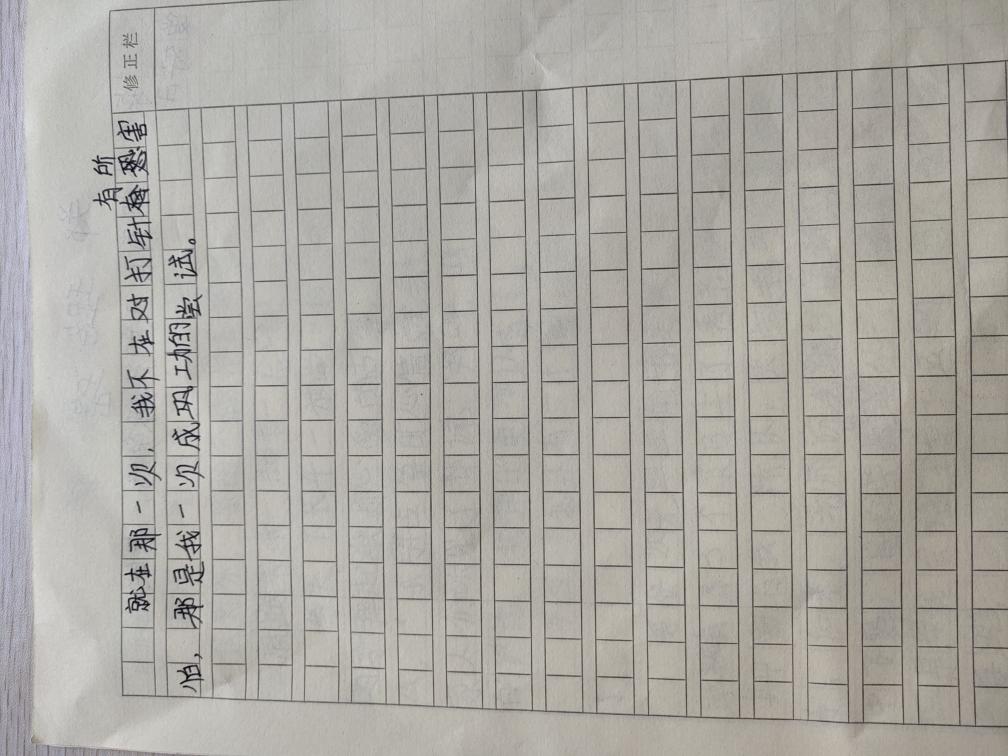 修正栏
有所
就在那一次，我不在对打针害
怕，那是我一次成巩功的尝试。